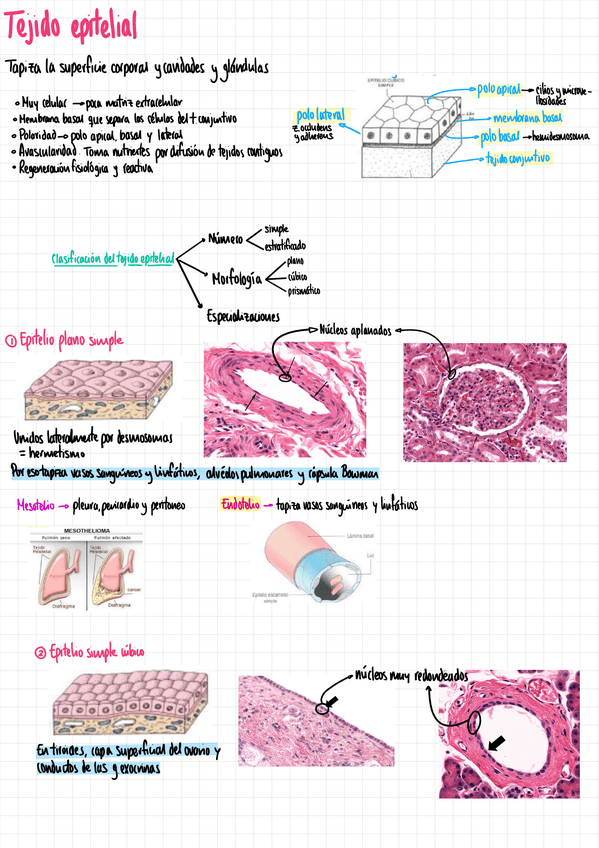 Tejido epitelial
Tapiza la superficie corporal y cavidades y glándulas
• Muy celular → poca matriz extracelular
• Membrana basal que separa las células del t conjuntivo
• Polaridad → polo apical, basal y lateral
• Avascularidad. Toma nutrientes por difusión de tejidos contiguos
• Regeneración fisiológica y reactiva
EPITELIO CÚBICO
SIMPLE
polo apical → cilios y microve-
llosidades
membrana basal
polo basal → hemidesmosoma
tejido conjuntivo
polo lateral
z occludens
y adherens
Clasificación del tejido epitelial
Número
simple
estratificado
Morfología
plano
cúbico
prismático
Especializaciones
① Epitelio plano simple
Núcleos aplanados
Unidos lateralmente por desmosomas
= hermetismo
Por eso tapiza vasos sanguíneos y linfáticos, alvéolos pulmonares y cápsula Bowman
Mesotelio → pleura, pericardio y peritoneo
Endotelio → tapiza vasos sanguíneos y linfáticos
MESOTHELIOMA
Pulmón sano
Pulmón afectado
Tejido
Mesotelial
Tejido
Mesotelial
cancer
Diafragma
Diafragma
Lámina basal
Luz
Epitelio escamoso
simple
② Epitelio simple cúbico
núcleos muy redondeados
En tiroides, capa superficial del ovario y
conductos de las g exocrinas